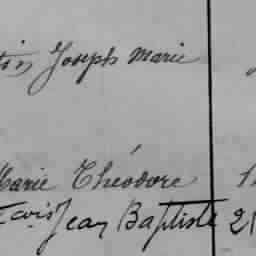 Joseph Marie
Marie Théodore
Jean Baptiste 21